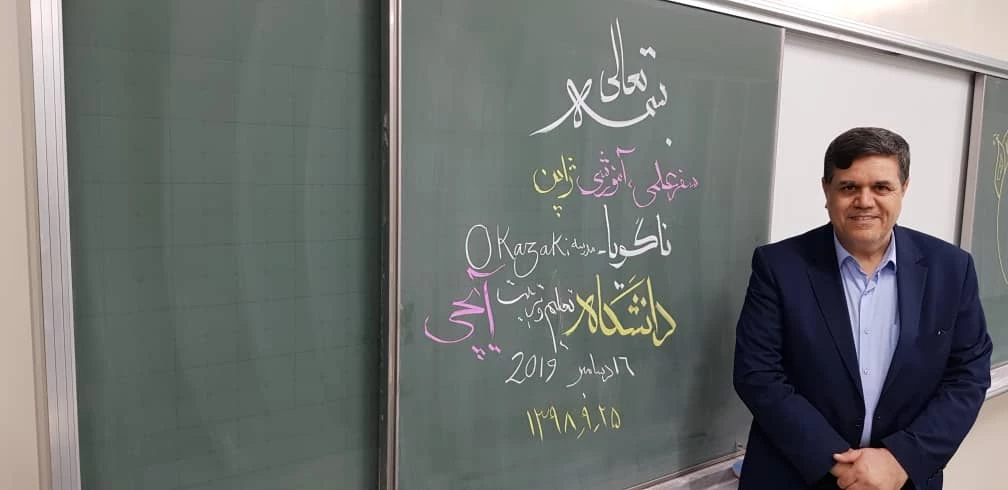 بسمه تعالی
سفر علمی، آموزشی ژاپن
ناگویا - مدرسه Okazaki
دانشگاه تعلیم و تربیت آیچی
۱۶ دسامبر 2019
۱۳۹۸٫۹٫۲۵